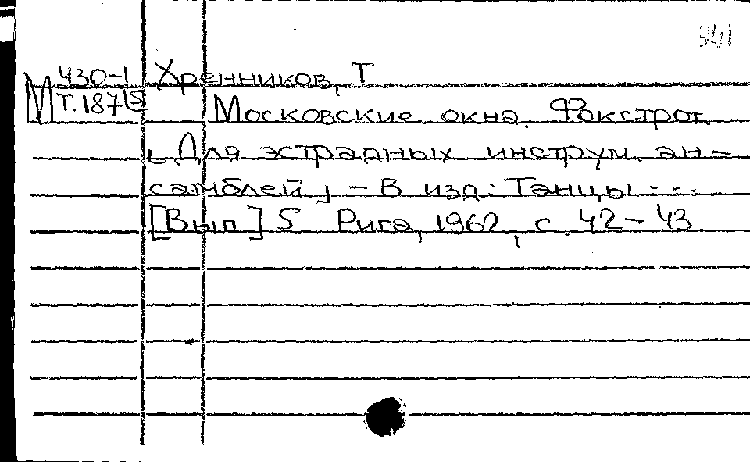 941
430-1 Хренников, Т
М Т.187(5)
Московские окна. Фокстрот.
[Для эстрадных инструм. ан-
самблей] - В изд: Танцы ...
[Вып] 5 Рига, 1962, с. 42-43